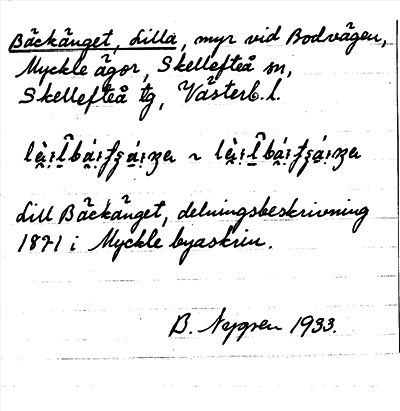 Bäckänget, Lilla, myr vid Bodvägen,
Myckle ägor, Skellefteå sn,
Skellefteå tg, Västerb. l.
~
Lill Bäckänget, delningsbeskrivning
1871 i Myckle byaskrin.
B. Nygren 1933.